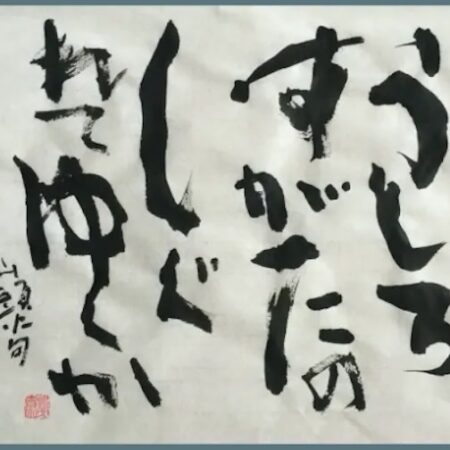 うしろ
すがたの
しぐ
れてゆくか
山頭火句